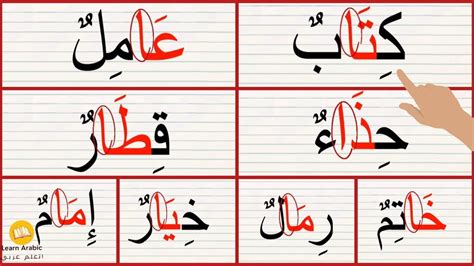 كِتَابٌ
عَامِلٌ
حِذَاءٌ
قِطَارٌ
خَاتِمٌ
رِمَالٌ
خِيَارٌ
إِمَامٌ
Learn Arabic
اتعلم عربي